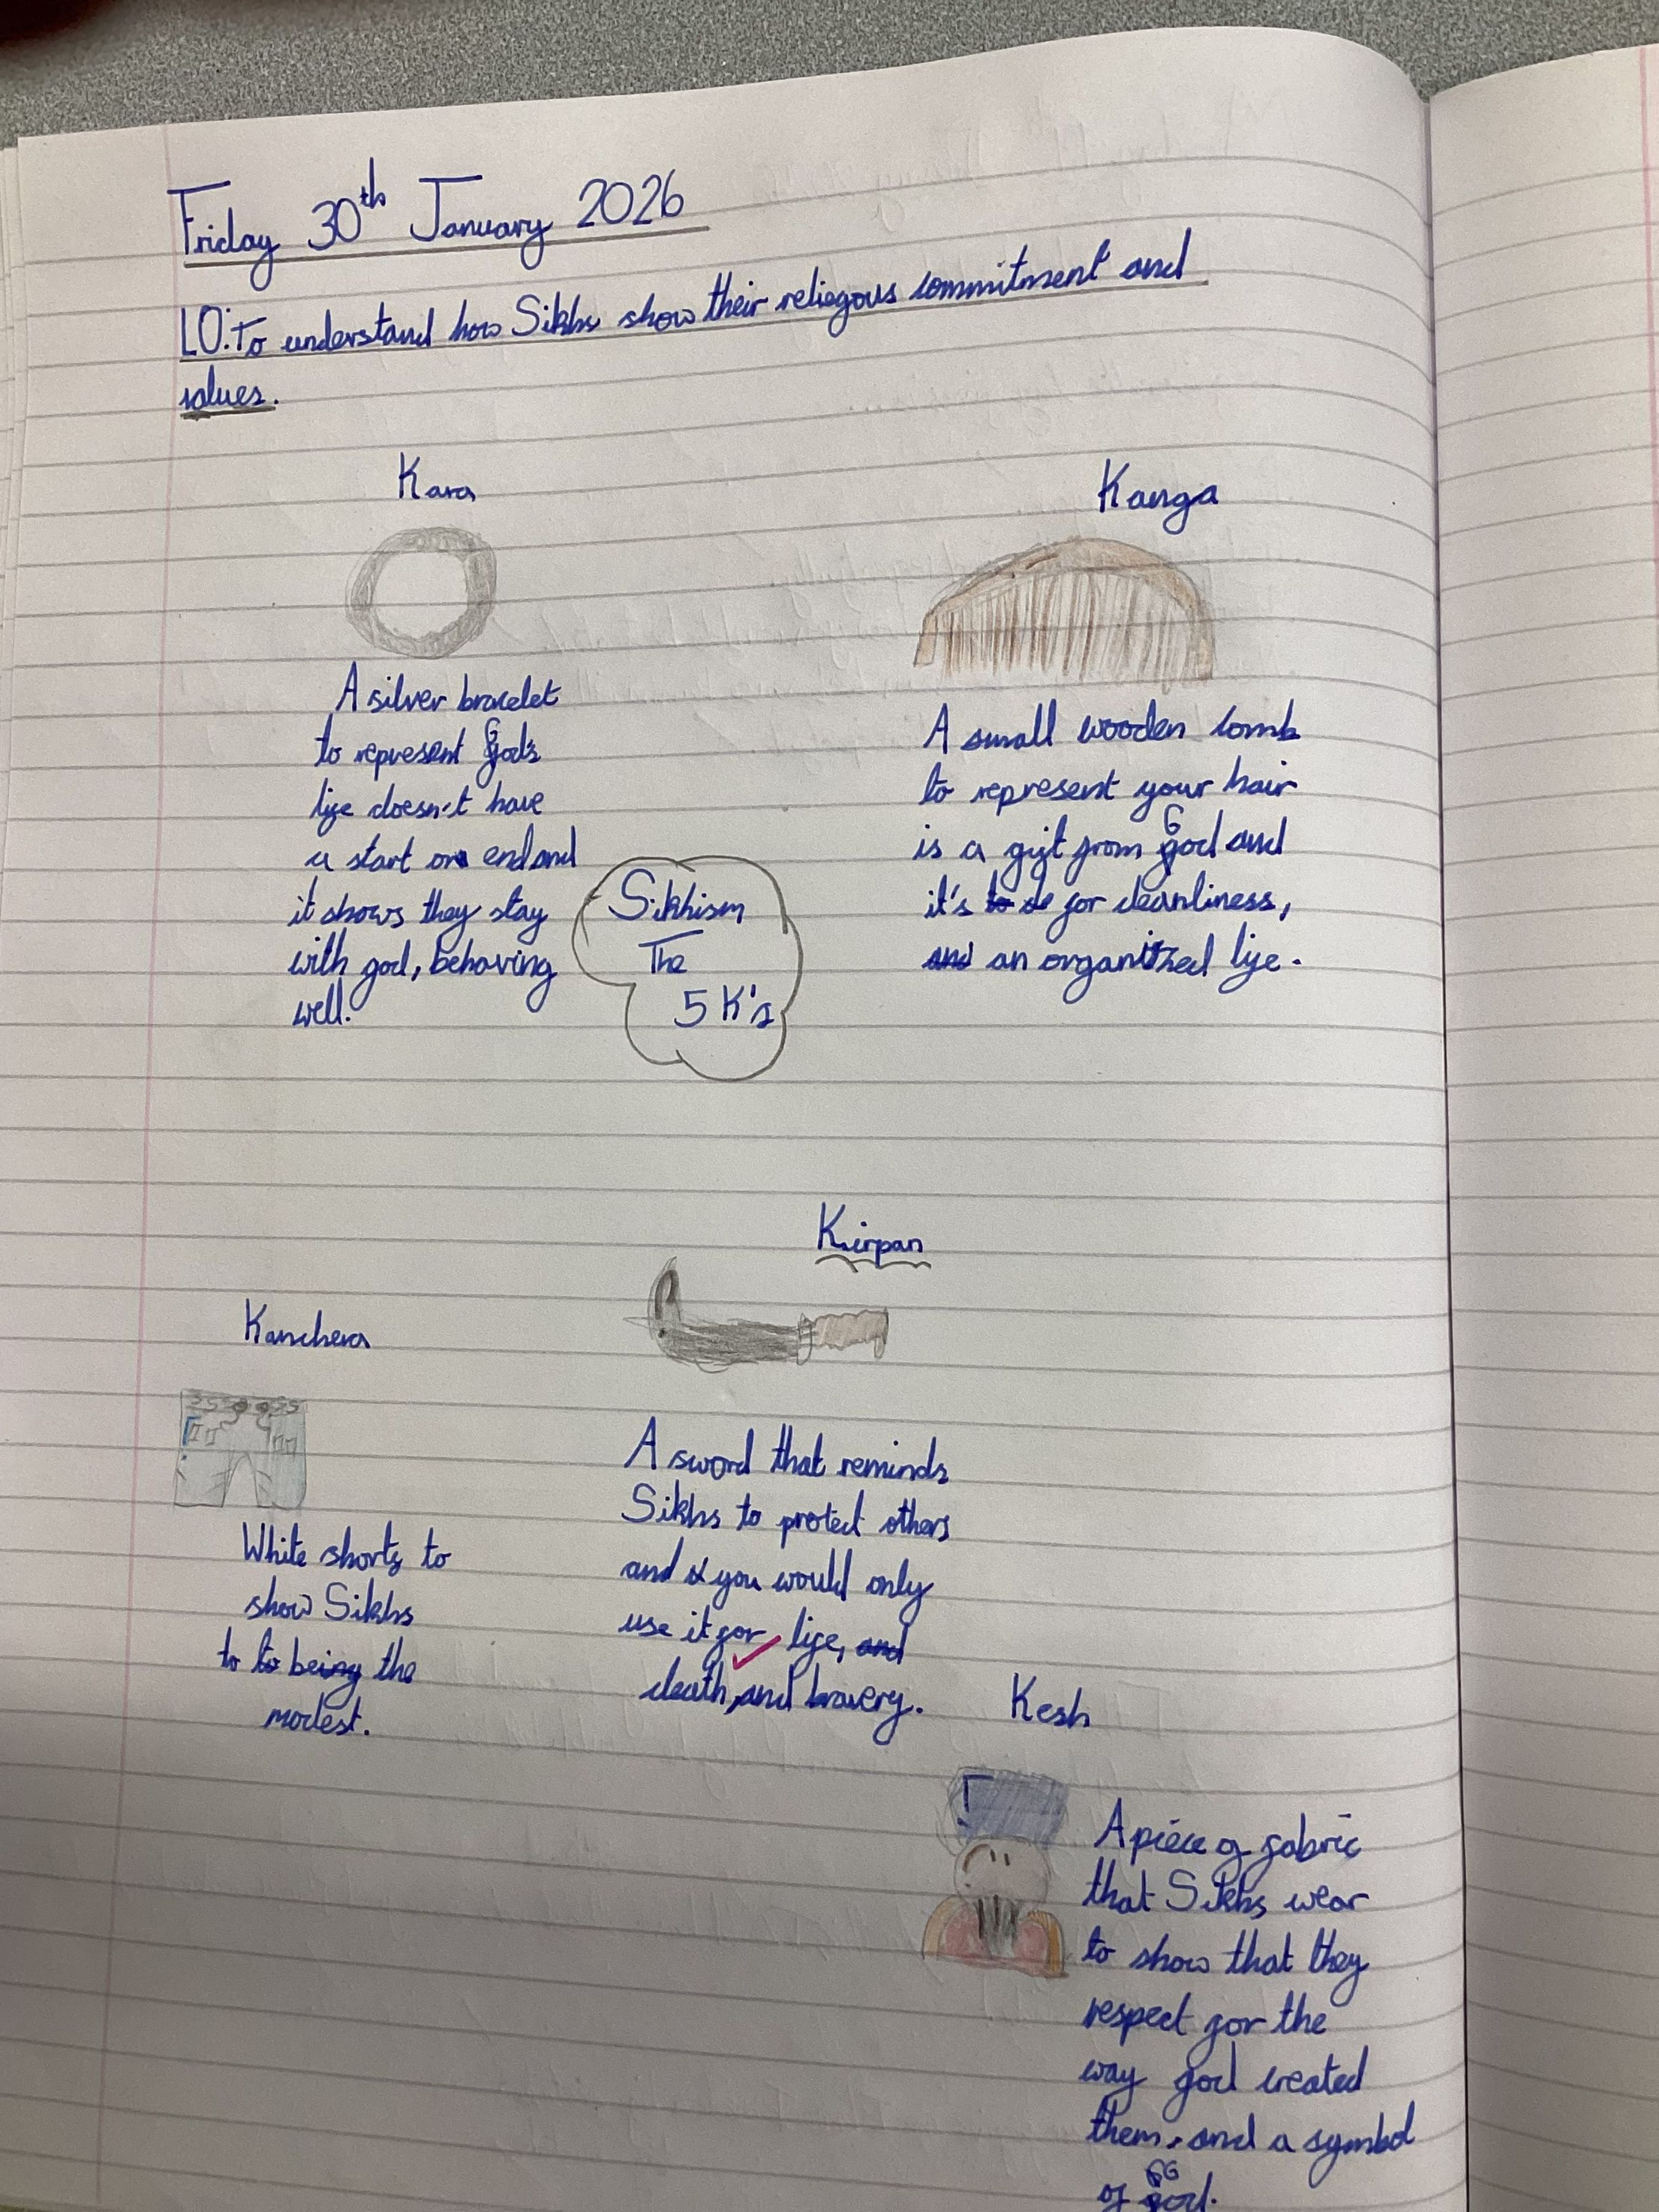 Friday 30th January 2026
LO: To understand how Sikhs show their reliegous commitment and
values.
Kara
A silver bracelet
to represent God's
life doesn't have
a start or end and
it shows they stay
with god, behaving
well.
Kanga
A small wooden comb
to represent your hair
is a gift from God and
it's to de for cleanliness,
and an organized life.
Sikhism
The
5 K's
Kirpan
A sword that reminds
Sikhs to protect others
and you would only
use it for life, and
death, and bravery.
Kanchera
White shorts to
show Sikhs
to to being the
modest.
Kesh
A piece of fabric
that Sikhs wear
to show that they
respect for the
way god created
them. and a symbol
of God.